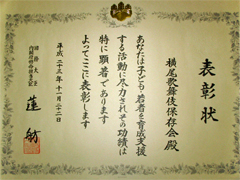 表彰状
横尾歌舞伎保存会殿
あなたは子ども・若者を育成支援
する活動に尽力されその功績は
特に顕著であります
よってここに表彰します
平成二十三年十一月二十二日
国務大臣
蓮舫